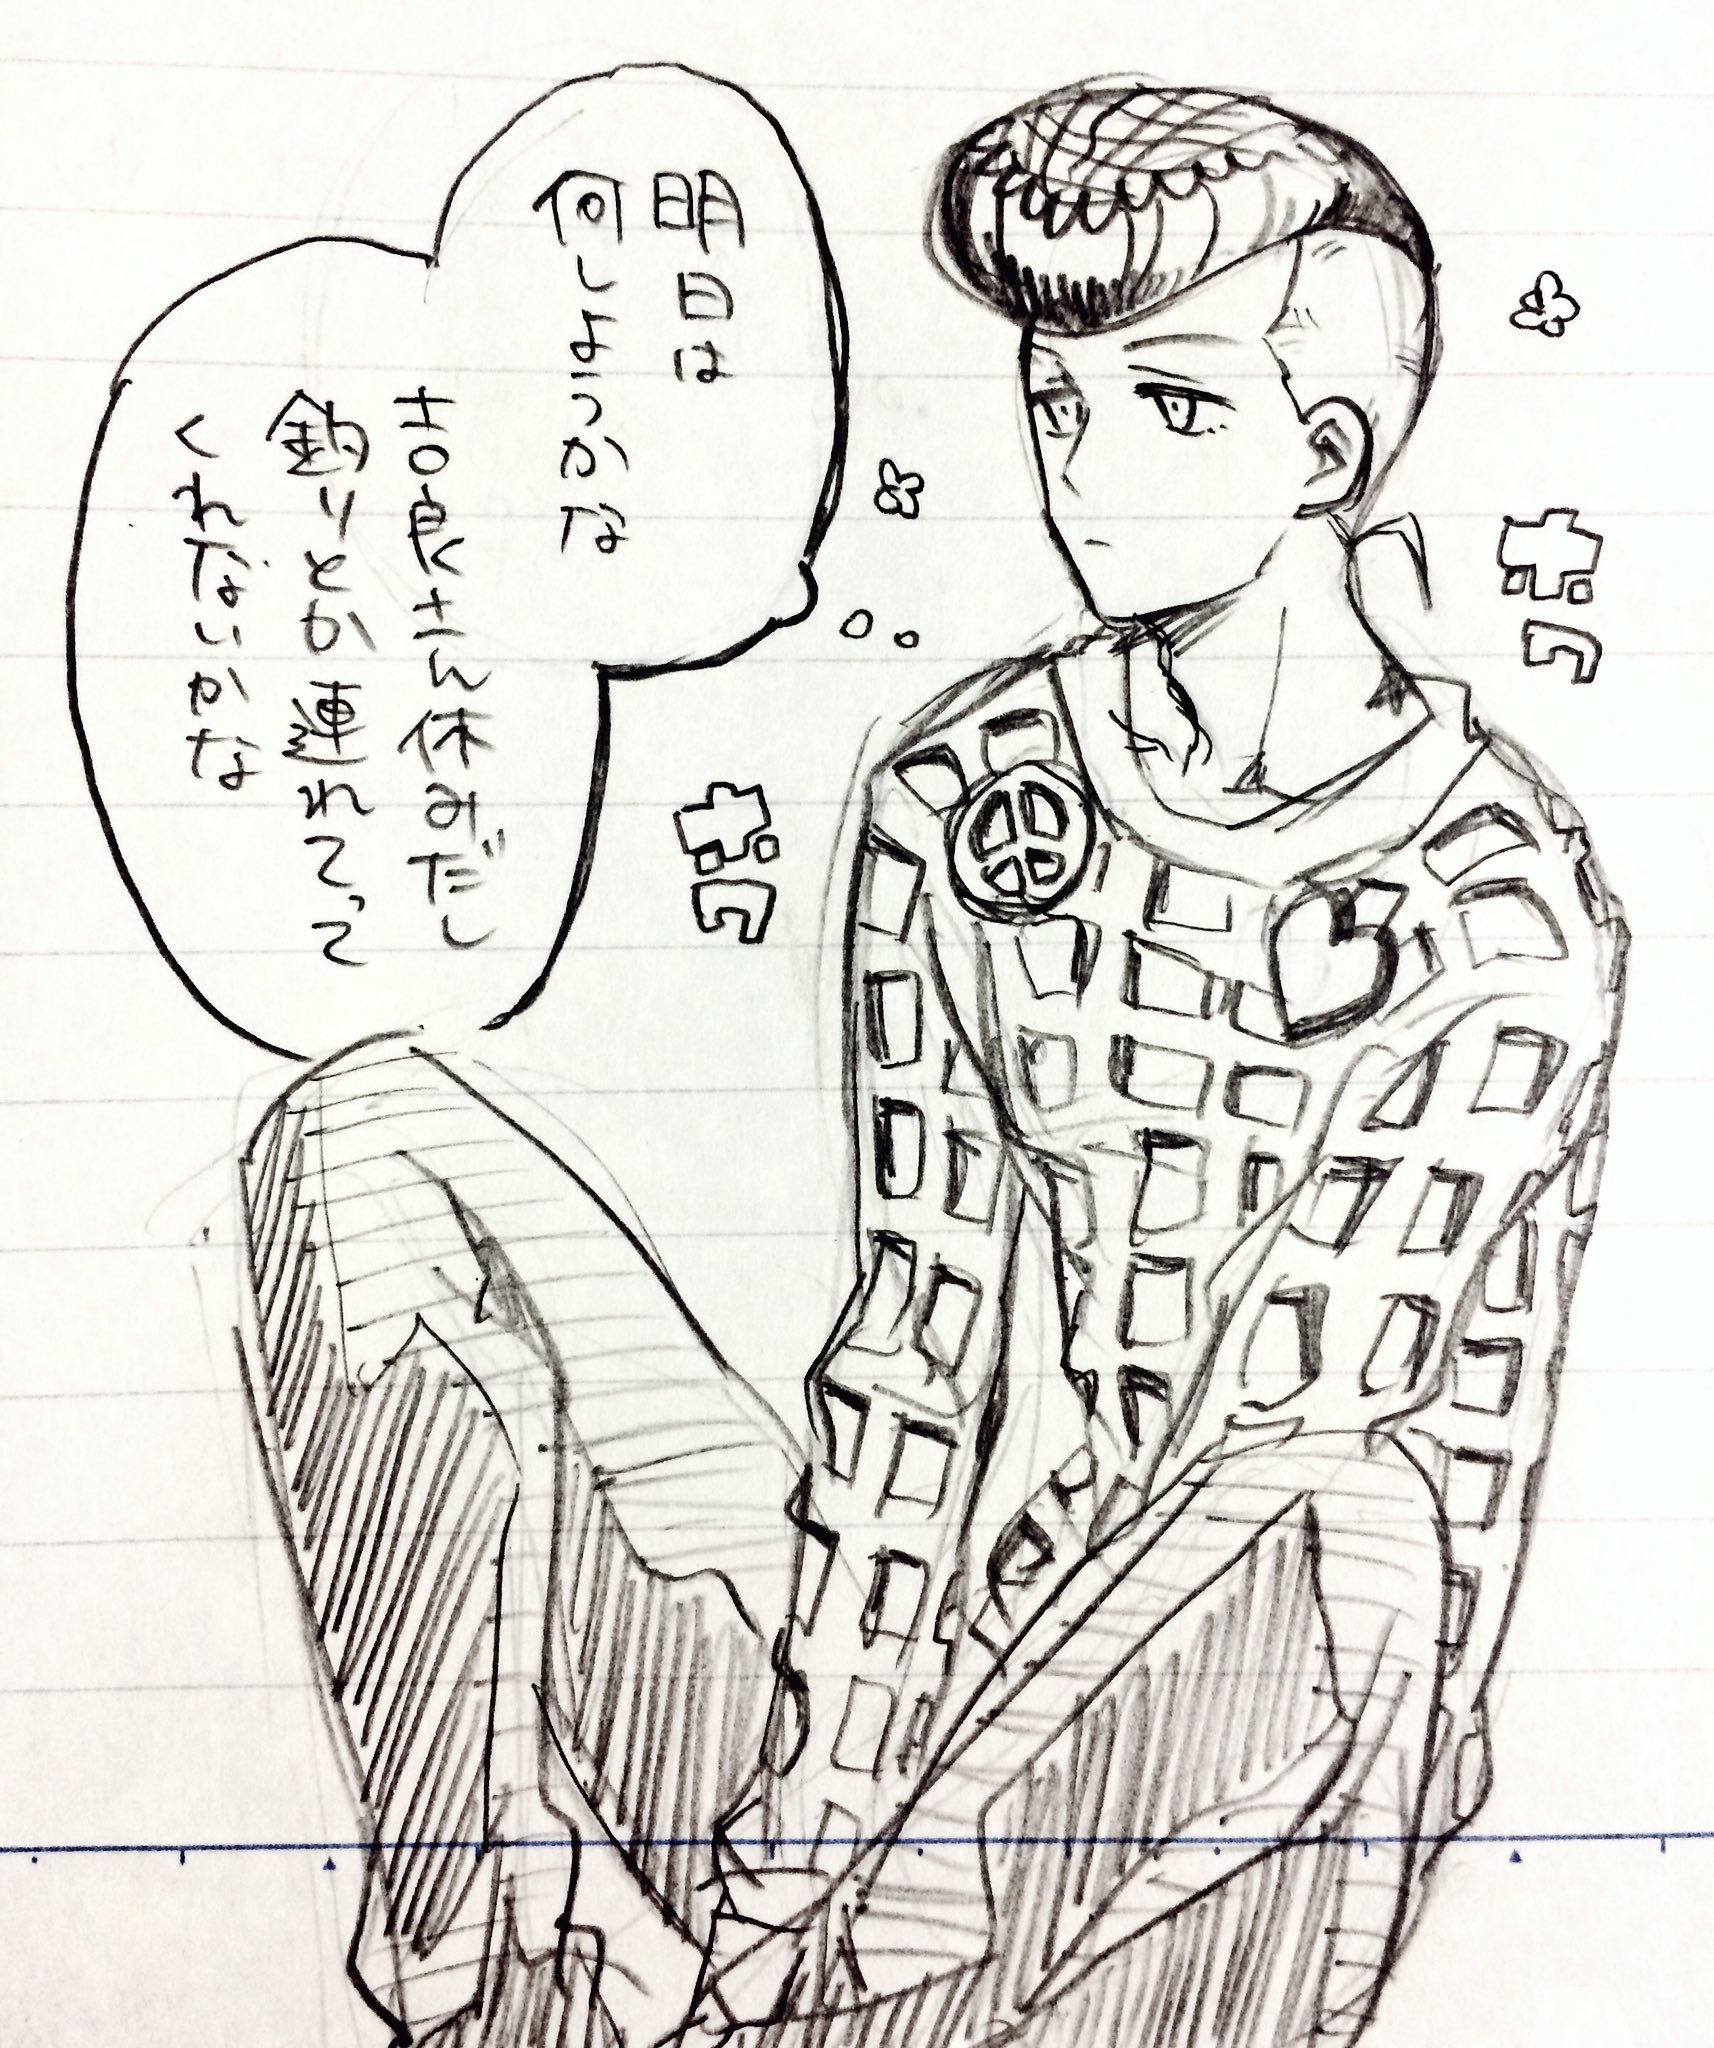 明日は
何しようかな
吉良さん休みだし
釣りとか連れてって
くれないかな
ホワ
ホワ